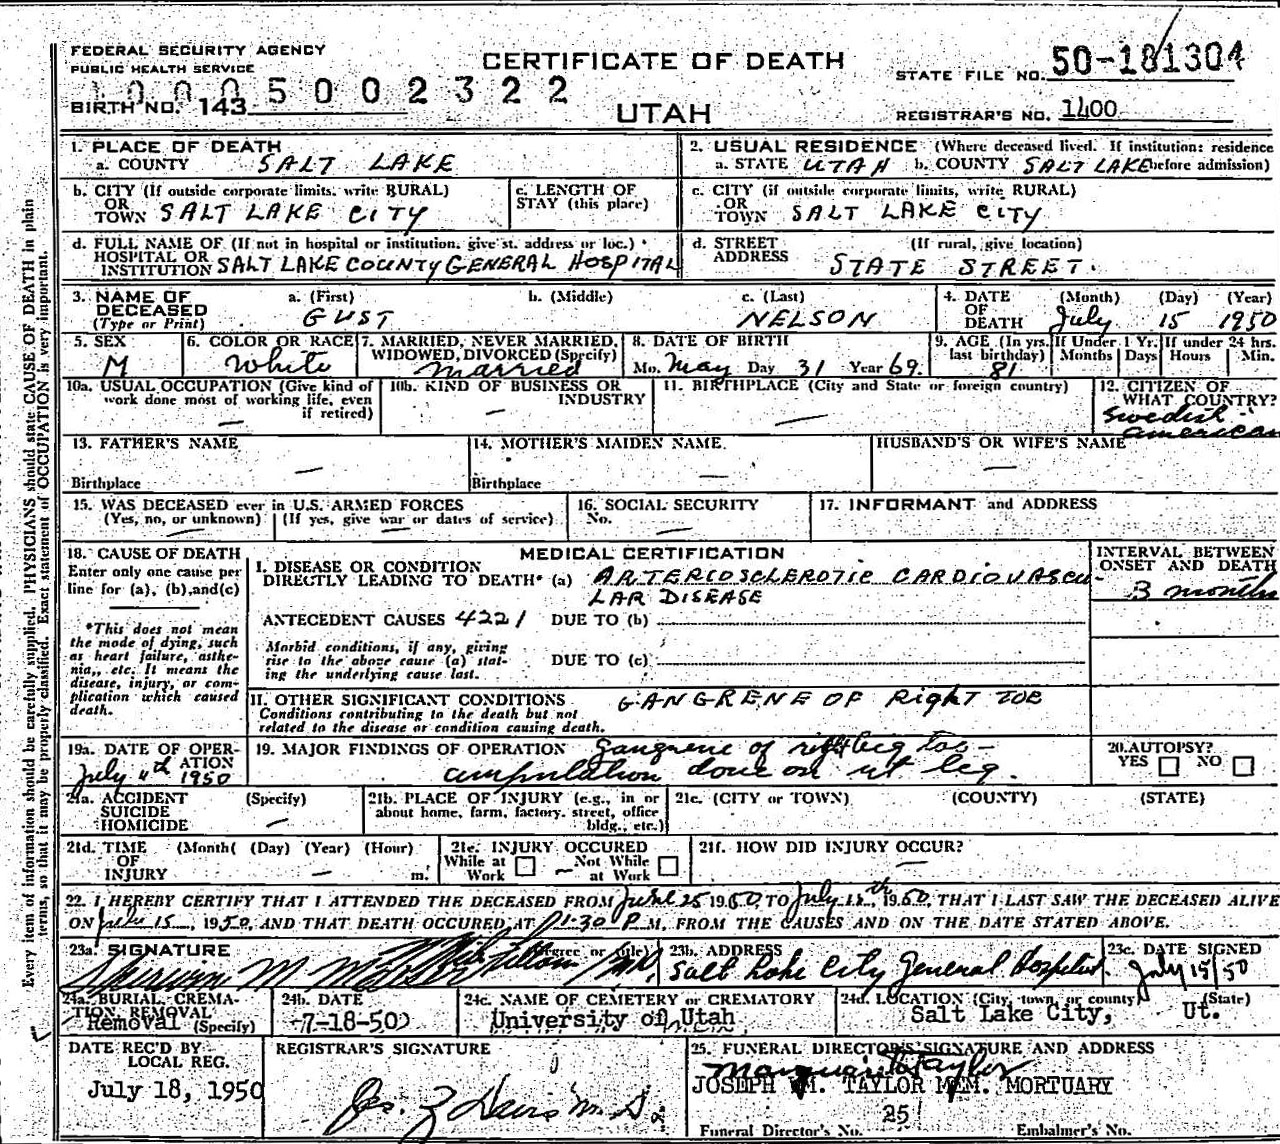 FEDERAL SECURITY AGENCY
PUBLIC HEALTH SERVICE
CERTIFICATE OF DEATH
UTAH
STATE FILE NO. 50-181304
1000 5002322
BIRTH NO. 143
REGISTRAR'S NO. 1400
Every item of information should be carefully supplied. PHYSICIANS should state CAUSE OF DEATH in plain
terms, so that it may be properly classified. Exact statement of OCCUPATION is very important.
1. PLACE OF DEATH
a. COUNTY SALT LAKE
2. USUAL RESIDENCE (Where deceased lived. If institution: residence
a. STATE UTAH b. COUNTY SALT LAKE before admission)
b. CITY (If outside corporate limits, write RURAL)
OR
TOWN SALT LAKE CITY
c. LENGTH OF
STAY (this place)
c. CITY (if outside corporate limits, write RURAL)
OR
TOWN SALT LAKE CITY
d. FULL NAME OF (If not in hospital or institution, give st. address or loc.)
HOSPITAL OR
INSTITUTION SALT LAKE COUNTY GENERAL HOSPITAL
d. STREET (If rural, give location)
ADDRESS STATE STREET.
3. NAME OF DECEASED
(Type or Print)
a. (First) b. (Middle) c. (Last)
GUST NELSON
4. DATE OF DEATH (Month) (Day) (Year)
July 15 1950
5. SEX
M
6. COLOR OR RACE
White
7. MARRIED, NEVER MARRIED,
WIDOWED, DIVORCED (Specify)
married
8. DATE OF BIRTH
Mo. May Day 31 Year 69
9. AGE (In yrs. last birthday)
81
If Under 1 Yr. Months Days
If under 24 hrs. Hours Min.
10a. USUAL OCCUPATION (Give kind of
work done most of working life, even
if retired) —
10b. KIND OF BUSINESS OR
INDUSTRY
—
11. BIRTHPLACE (City and State or foreign country)
—
12. CITIZEN OF
WHAT COUNTRY?
Swedish -
american
13. FATHER'S NAME
—
Birthplace
14. MOTHER'S MAIDEN NAME
—
Birthplace
HUSBAND'S OR WIFE'S NAME
—
15. WAS DECEASED ever in U.S. ARMED FORCES
(Yes, no, or unknown) (If yes, give war or dates of service)
— —
16. SOCIAL SECURITY
No. —
17. INFORMANT and ADDRESS
18. CAUSE OF DEATH
Enter only one cause per
line for (a), (b), and (c)
*This does not mean
the mode of dying, such
as heart failure, asthe-
nia, etc. It means the
disease, injury, or com-
plication which caused
death.
MEDICAL CERTIFICATION
INTERVAL BETWEEN
ONSET AND DEATH
I. DISEASE OR CONDITION
DIRECTLY LEADING TO DEATH* (a) ARTERIOSCLEROTIC CARDIOVASCU-
LAR DISEASE
3 months
ANTECEDENT CAUSES 4221 DUE TO (b)
Morbid conditions, if any, giving
rise to the above cause (a) stat-
ing the underlying cause last.
DUE TO (c)
II. OTHER SIGNIFICANT CONDITIONS GANGRENE OF Right TOE
Conditions contributing to the death but not
related to the disease or condition causing death.
19a. DATE OF OPER-
ATION
July 4th 1950
19. MAJOR FINDINGS OF OPERATION Gangrene of right big toe -
amputation done on rt leg.
20. AUTOPSY?
YES NO
21a. ACCIDENT (Specify)
SUICIDE
HOMICIDE —
21b. PLACE OF INJURY (e.g., in or
about home, farm, factory, street, office
bldg., etc.)
21c. (CITY or TOWN) (COUNTY) (STATE)
21d. TIME (Month) (Day) (Year) (Hour)
OF
INJURY — m.
21e. INJURY OCCURED
While at Work Not While at Work
21f. HOW DID INJURY OCCUR?
—
22. I HEREBY CERTIFY THAT I ATTENDED THE DECEASED FROM June 25 1950, TO July 15th, 1950, THAT I LAST SAW THE DECEASED ALIVE
ON July 15, 1950, AND THAT DEATH OCCURED AT 11:30 P M, FROM THE CAUSES AND ON THE DATE STATED ABOVE.
23a. SIGNATURE (Degree or title)
M.
23b. ADDRESS
Salt Lake City General Hospital.
23c. DATE SIGNED
July 15/50
24a. BURIAL, CREMA-
TION, REMOVAL
Removal (Specify)
24b. DATE
7-18-50
24c. NAME OF CEMETERY or CREMATORY
University of Utah
24d. LOCATION (City, town, or county) (State)
Salt Lake City, Ut.
DATE REC'D BY
LOCAL REG.
July 18, 1950
REGISTRAR'S SIGNATURE
25. FUNERAL DIRECTOR'S SIGNATURE AND ADDRESS
Taylor
JOSEPH WM. TAYLOR MEM. MORTUARY
25
Funeral Director's No. Embalmer's No.